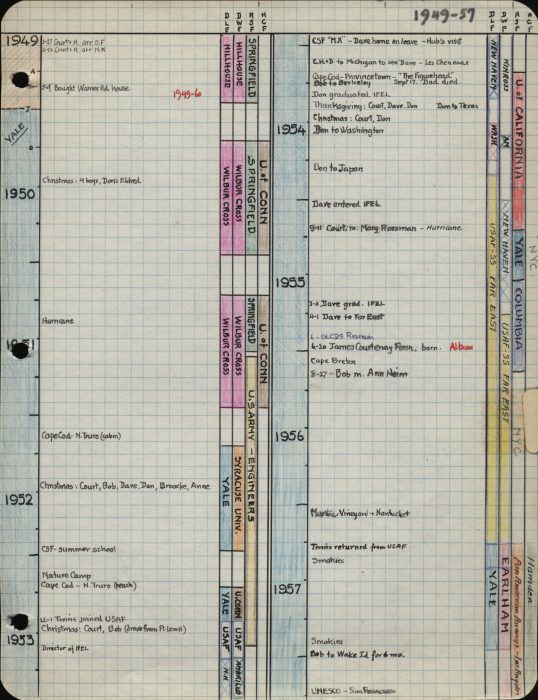 1949-57
1949
1-27 Court + H. arr. S.F
5-9 Bought Warner Rd. house
1949-60
YALE
A
J
O
1950
Christmas: 4 boys, Doris Eldred
Hurricane
1951
Cape Cod - N. Truro (cabin)
Christmas: Court, Bob, Dave, Don, Broocke, Anne
1952
CSF - summer school
Nature Camp
Cape Cod - N. Truro (beach)
12-1 Twins joined USAF
Christmas: Court, Bob (drove from Ft. Lewis)
1953
Director of IFEL
DLF
DWF
RSF
HCF
HILLHOUSE
HILLHOUSE
SPRINGFIELD
WILBUR CROSS
WILBUR CROSS
SPRINGFIELD
U. of CONN
WILBUR CROSS
WILBUR CROSS
SPRINGFIELD
U. of CONN
U.S. ARMY - ENGINEERS
YALE
SYRACUSE UNIV.
YALE
U. CONN
USAF
USAF
N.H
AMARILLO
CSF "MA" - Dave home on leave - Hub's visit
C,H+D to Michigan to see Dave - Les Cheneaux
Cape Cod - Provincetown - "The Figurehead"
Bob to Berkeley Sept 17. Dad died.
Don graduated IFEL
Thanksgiving: Court, Dave, Don Don to Texas
Christmas: Court, Don
1954
Don to Washington
Don to Japan
Dave entered IFEL
9-11 Court m. Mary Rossman - Hurricane
1955
Dave grad. IFEL
4-1 Dave to Far East
OLCDS Reunion
6-20 James Courtenay Fenn, born. Album
Cape Breton
8-27 - Bob m. Ann Heim
1956
Martha Vineyard + Nantucket
Twins returned from USAF
Smokies
1957
Smokies
Bob to Wake Id for 6 mo.
UNESCO - San Francisco
DLF
DWF
RSF
HCF
NEW HAVEN
KINROSS
U. of CALIFORNIA
WASH.
AM
USAF-SS FAR EAST
NEW HAVEN
YALE
COLUMBIA
NYC
USAF-SS FAR EAST
NYC
YALE
EARLHAM
Hamden
Pan American Airways - Los Angeles